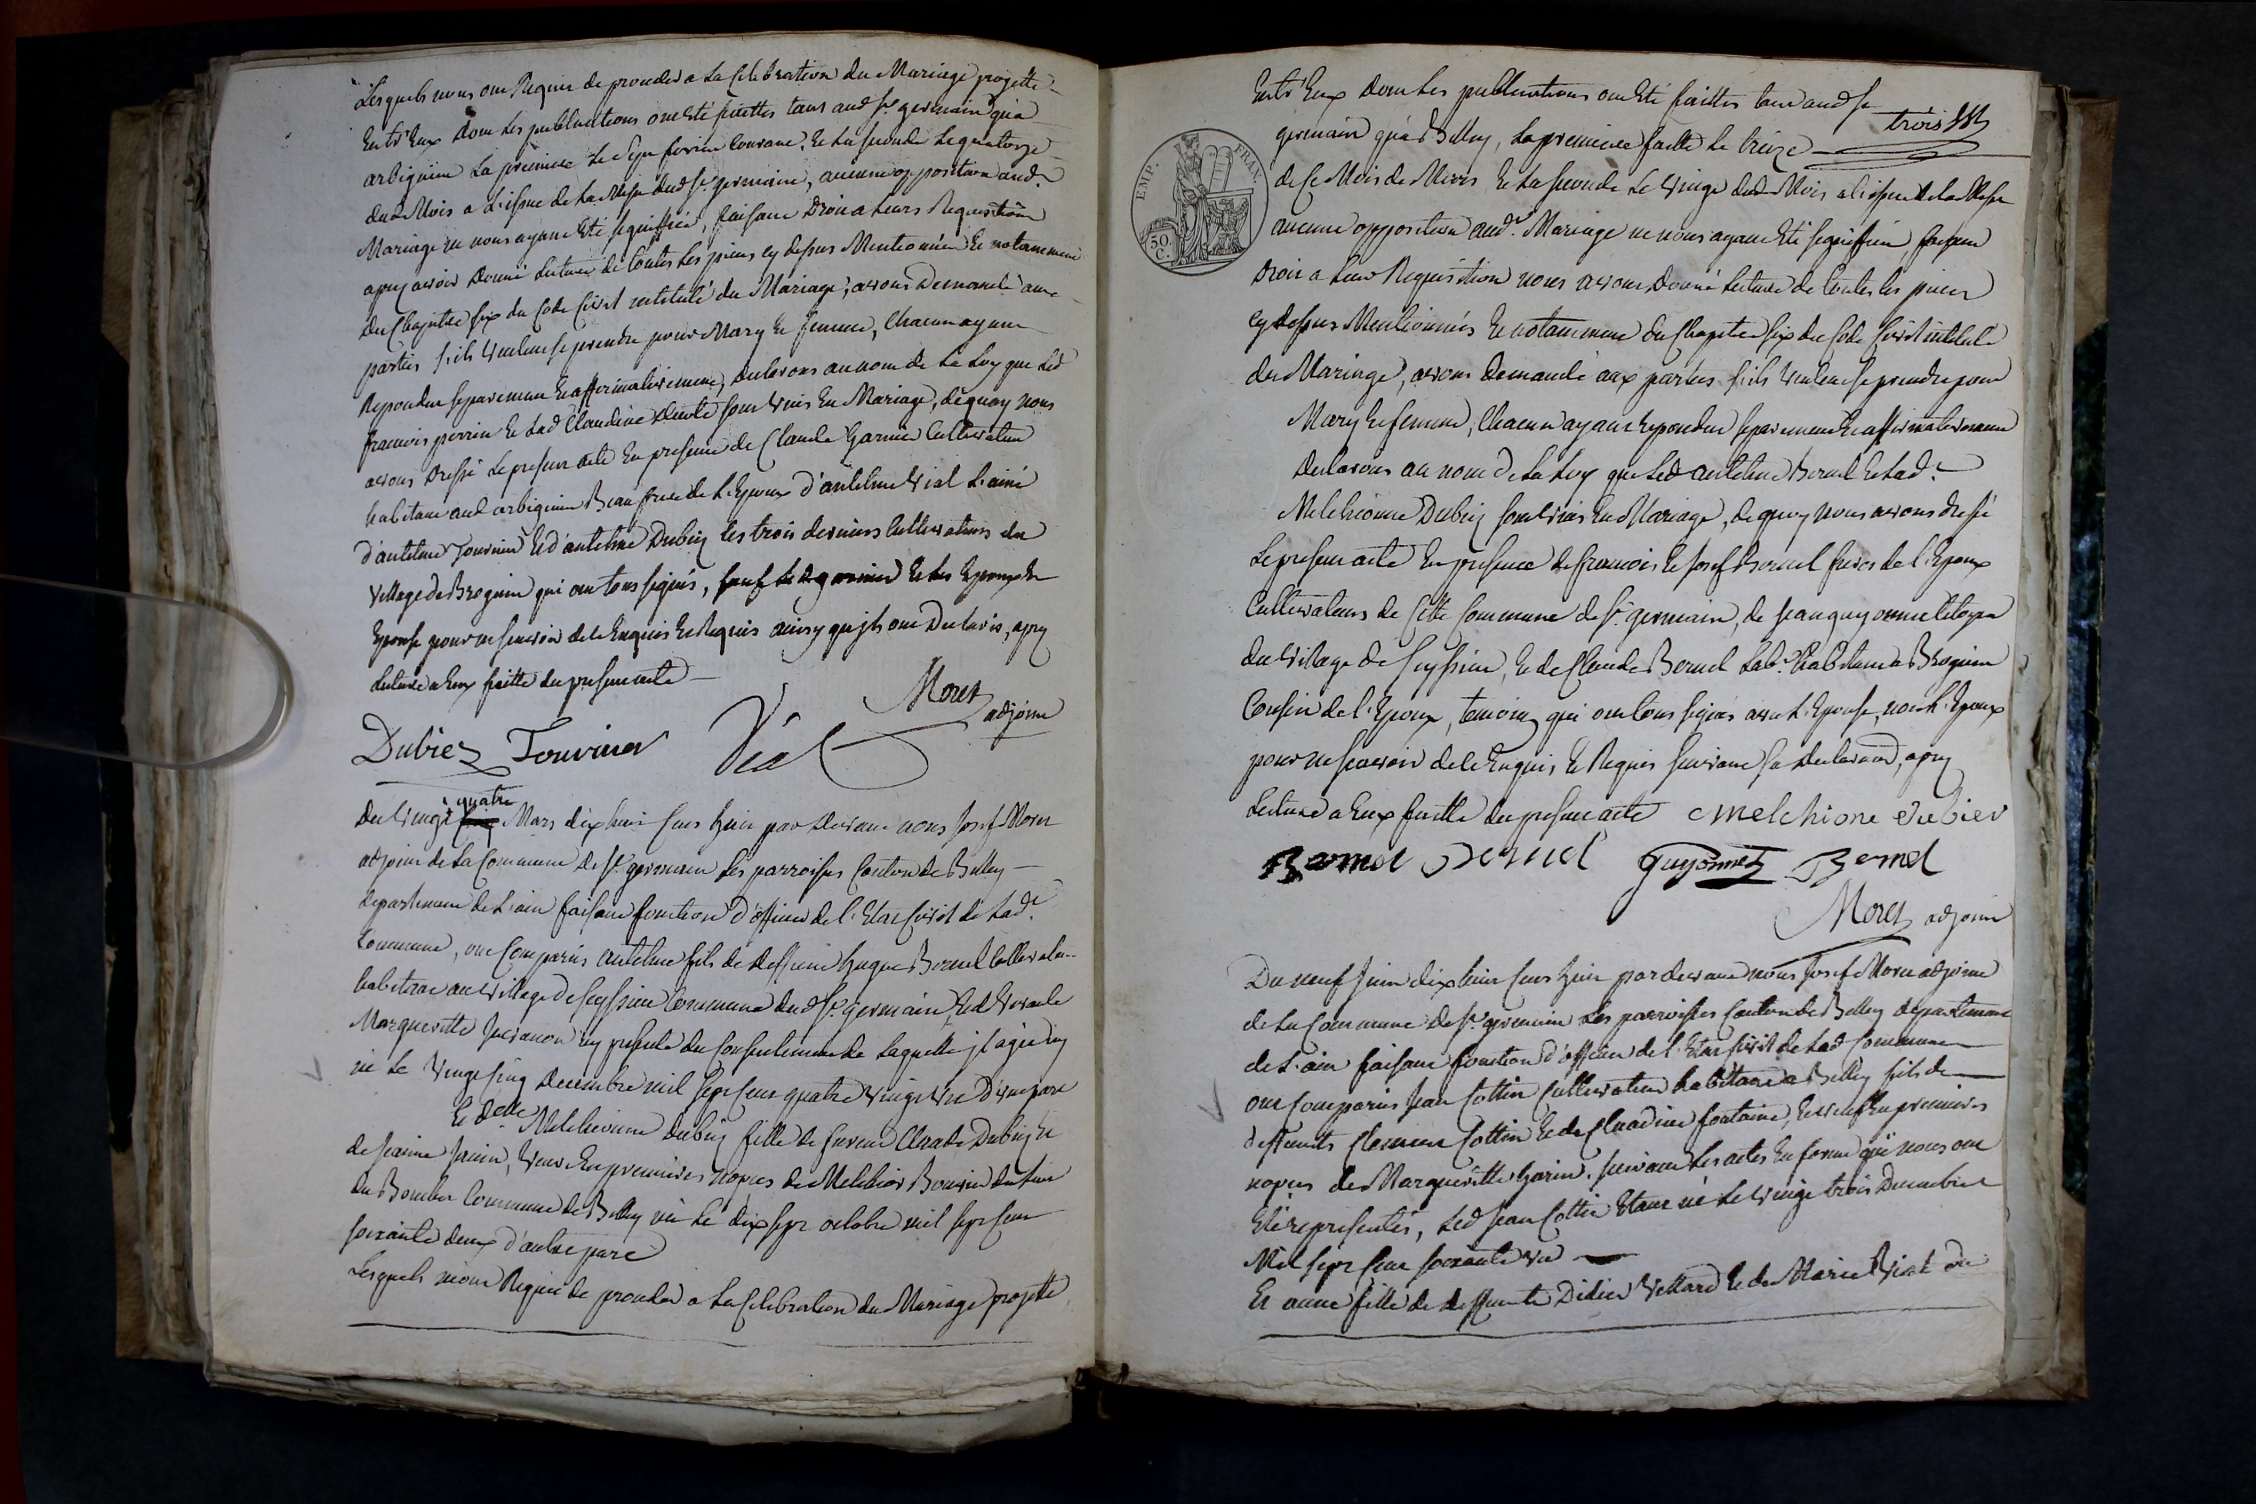 Lesquels nous ont Requis de proceder a La Celebration du Mariage projetté
Entr'Eux dont Les publications ont Eté faittes tant aud. St. germain qu'a
arbignieu La premiere Le Sept fevrier Courant, Et La seconde Le quatorze
dud. Mois a L'issue de La Messe dud. St. germain, aucune opposition aud.
Mariage ne nous ayant Eté signiffiée, faisant Droit a Leurs Requisition
apres avoir Donné Lecture de toutes Les pieces cy dessus Mentionnées Et notamment
du Chapitre six du Code Civil intitulé du Mariage, avons Demandé aux
parties s'ils veulent se prendre pour Mary Et femme, Chacun ayant
Repondu separement Et affirmativement, declarons au nom de La Loy que Led.
francois perrin Et Lad. Claudine sont unis En Mariage, de quoy nous
avons Dressé Le present acte En presence de Claude Garnier Cultivateur
habitant aud. arbignieu Beau frere de L'Epoux d'antelme Vial L'ainé
d'antelme Touvier Et d'antelme Dubiez Les trois derniers Cultivateurs du
village de Brognin qui ont tous signés, sauf Led. garnier Et Les Epoux Et
Epouse pour ne scavoir de ce Enquis Et Requis ainsy qu'ils ont Declarés, apres
Lecture a Eux faitte du present acte
Moret
adjoint
Dubiez Touvier Vial
quatre
Du vingt Mars dix huit Cent huit par devant nous Josef Moret
adjoint de La Commune de St. germain Les parroisses Canton de Belley
departement de L'ain faisant fonction d'officier de L'Etat Civil de Lad.e
Commune, ont Comparus antelme fils de deffunt hugue Bernel Cultivateur
habitant au village de Seyssieu Commune dud. St. germain, Et d'
Marguerite cy presente du Consentement de Laquelle jl agit
né Le vingt cinq decembre mil sept Cent quatre vingt un d'une part
Et d.elle Melchionne dubiez fille de Claude Dubiez Et
de Jeanne Janin, veuve En premieres nopces de Melchior Bouvier
du Commune de Belley née Le dix sept octobre mil sept Cent
soixante deux d'autre part
Lesquels nous Requis de proceder a La Celebration du Mariage projetté
trois
Entr'Eux dont Les publications ont Eté faittes tant aud. St.
germain qu'a Belley, La premiere faitte Le treize
de Ce Mois de Mars Et La seconde Le vingt dud. Mois a L'issue de La Messe
aucune opposition aud. Mariage ne nous ayant Eté signiffiée, faisant
Droit a Leur Requisition nous avons Donné Lecture de toutes Les pieces
cy dessus Mentionnées Et notamment du Chapitre six du Code Civil intitulé
du Mariage, avons Demandé aux parties s'ils veulent se prendre pour
Mary Et femme, Chacun ayant Repondu separement Et affirmativement
declarons au nom de La Loy que Led. antelme Bernel Et Lad.e
Melchionne Dubiez sont unis En Mariage, de quoy nous avons dressé
Le present acte En presence de francois Et Josef Bernel freres de L'Epoux
Cultivateurs de Cette Commune de St. germain, de Jean guyonnet
du village de Seyssieu, Et de Claude Bernel Lab.r habitant a Brognin
Cousin de L'Epoux, temoins qui ont tous signés avec L'Epouse, non L'Epoux
pour ne scavoir de ce Enquis Et Requis suivant sa declaration, apres
Lecture a Eux faitte du present acte Melchione dubiez
Bernel Bernel Guyonnet Bernel
Moret adjoint
Du neuf Juin dix huit Cent huit par devant nous Josef Moret adjoint
de La Commune de St. germain Les parroisses Canton de Belley departement
de L'ain faisant fonction d'officier de L'Etat Civil de Lad. Commune
ont Comparus Jean Cottin Cultivateur habitant a Belley fils de
deffunts Clement Cottin Et de Claudine fontaine, Et veuf En premieres
nopces de Marguerite Garin, suivant Les actes En forme qui nous ont
Eté representés, Led. Jean Cottin Etant né Le vingt trois Decembre
Mil sept Cent soixante un
Et anne fille de deffunts Didier Vettard Et de Marie
EMP. FRAN.
50 C.